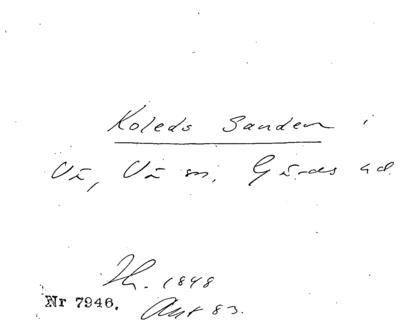 Koleds Sanden i
Vä, Vä sn, Gärds hd.
Th. 1848
Nr 7946. Ant 83.